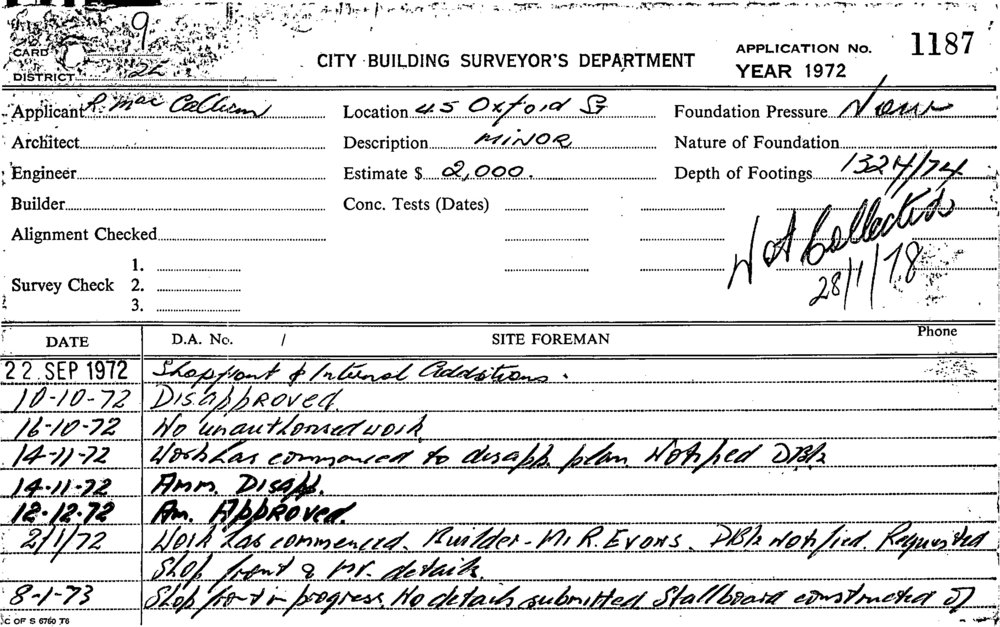 CARD 9
DISTRICT 22
CITY BUILDING SURVEYOR'S DEPARTMENT
APPLICATION No. 1187
YEAR 1972
Applicant R. Mac Callum Location 45 Oxford St Foundation Pressure
Architect Description MINOR Nature of Foundation
Engineer Estimate $ 2,000. Depth of Footings 1324/74
Builder Conc. Tests (Dates)
Not Collected
28/1/78
Alignment Checked
Survey Check 1.
2.
3.
DATE D.A. No. / SITE FOREMAN Phone
22 SEP 1972 Shopfront & Internal Additions.
10-10-72 Disapproved.
16-10-72 No unauthorised work
14-11-72 Work has commenced to disapp. plan Notified
14-11-72 Amm. Disapp.
12-12-72 Am. Approved.
2/1/72 Work has commenced. Builder - Mr R. Evans. notified. Requested
Shop front & details.
8-1-73 Shop front in progress. No details submitted. Stallboard constructed of
C OF S 6760 T6